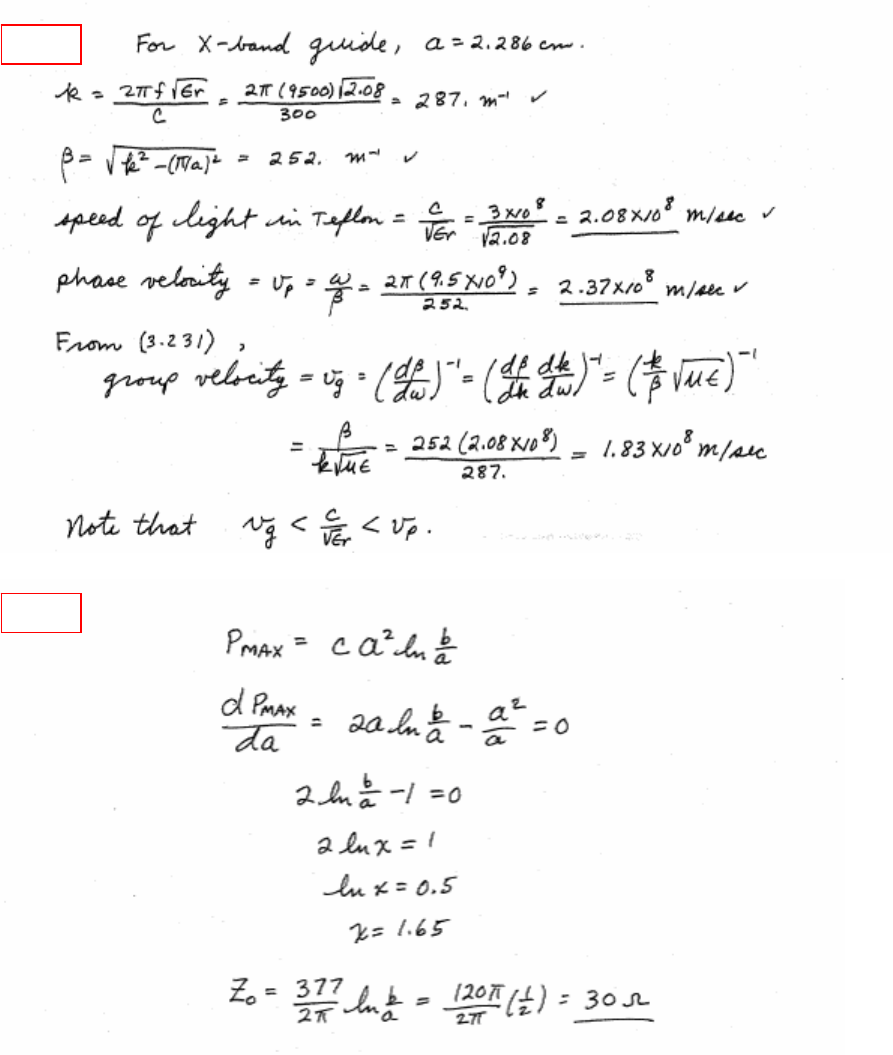 For X-band guide, a = 2.286 cm.
k = 2πf√εr / c = 2π(9500)√2.08 / 300 = 287. m⁻¹ ✓
β = √(k² - (π/a)²) = 252. m⁻¹ ✓
speed of light in Teflon = c/√εr = 3x10⁸/√2.08 = 2.08x10⁸ m/sec ✓
phase velocity = vp = ω/β = 2π(9.5x10⁹)/252. = 2.37x10⁸ m/sec ✓
From (3.231),
group velocity = vg = (dβ/dω)⁻¹ = (dβ/dk dk/dω)⁻¹ = (k/β √με)⁻¹
= β/(k√με) = 252(2.08x10⁸)/287. = 1.83x10⁸ m/sec
Note that vg < c/√εr < vp.
PMAX = c a² ln b/a
dPMAX/da = 2a ln b/a - a²/a = 0
2 ln b/a - 1 = 0
2 ln x = 1
ln x = 0.5
x = 1.65
Z₀ = 377/2π ln b/a = 120π/2π (1/2) = 30 Ω